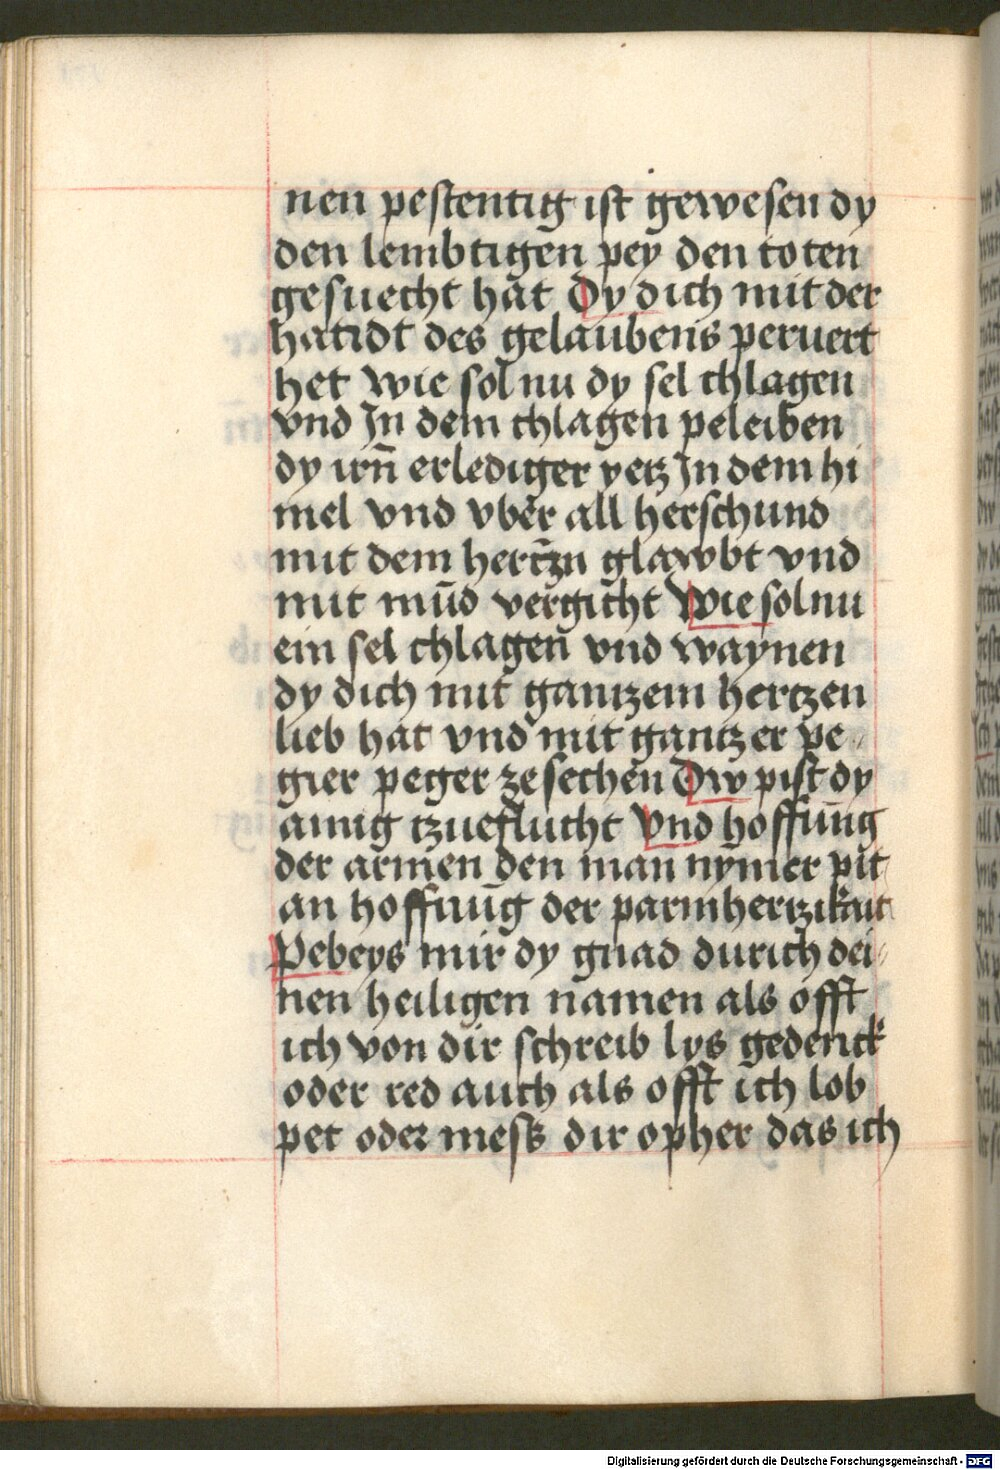 nen pestentig ist gewesen dy
den lembtigen pey den toten
gesuecht hat Dy dich mit der
hanndt des gelaubens peruert
het Wie sol nu dy sel chlagen
vnd In dem chlagen peleiben
dy irn̄ erlediger yetz In dem hi
mel vnd vber all herschund
mit dem hertz̄n glawbt vnd
mit mūd vergicht Wie sol nu
ein sel chlagen̄ vnd waynen
dy dich mit gantzem hertzen
lieb hat vnd mit gantzer pe⸗
gier peger ze sechen Dw pist dy
ainig tzueflucht Vnd hoffūng
der armen den man nymer pit
an hoffnūg der parmhertzikait
Pebeys mir dy gnad durich dei⸗
nen heiligen namen als offt
ich von dir schreib lys gedenck
oder red auch als offt ich lob
pet oder mess dir opher das ich
Digitalisierung gefördert durch die Deutsche Forschungsgemeinschaft - DFG